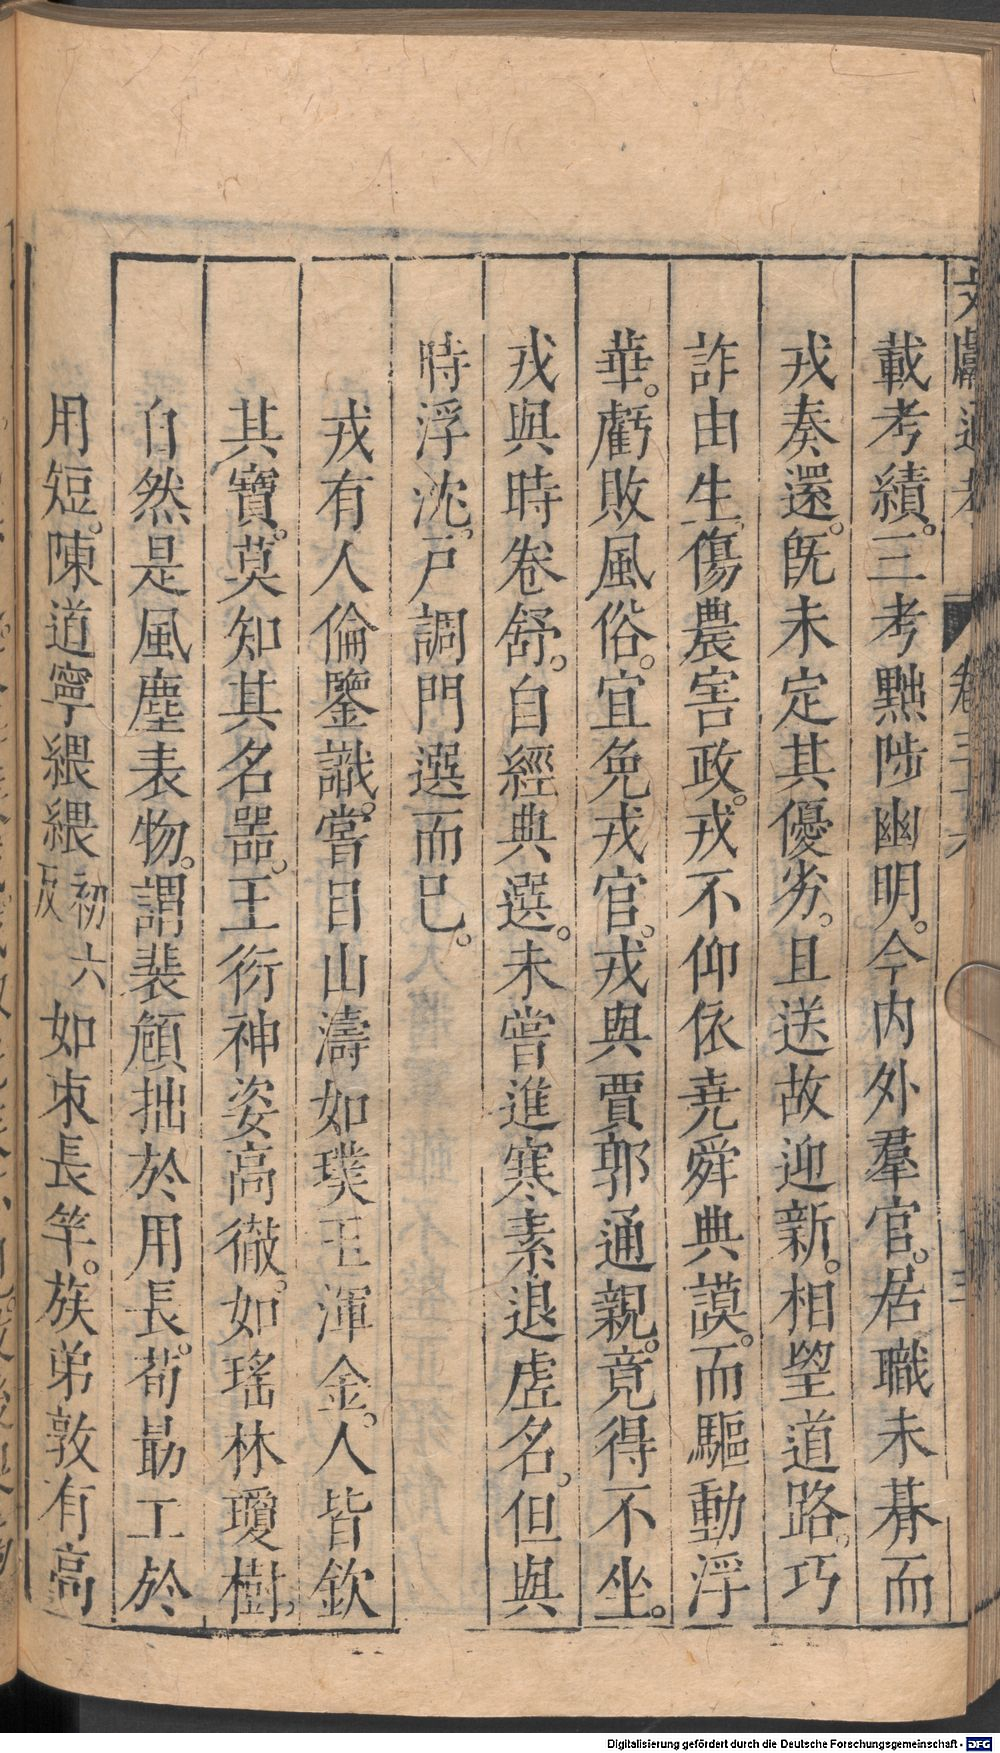 文獻通考 卷三十六 三
載考績。三考黜陟幽明。今内外羣官。居職未朞而
戎奏還。旣未定其優劣。且送故迎新。相望道路。巧
詐由生。傷農害政。戎不仰依堯舜典謨。而驅動浮
華。虧敗風俗。宜免戎官。戎與賈郭通親。竟得不坐。
戎與時卷舒。自經典選。未嘗進寒素退虛名。但與
時浮沈。戸調門選而已。
戎有人倫鑒識。嘗目山濤如璞玉渾金。人皆欽
其寶。莫知其名噐。王衍神姿高徹。如瑤林瓊樹。
自然是風塵表物。謂裴頠拙於用長。荀勗工於
用短。陳道寧緩緩初六反如束長竿。族弟敦有高
Digitalisierung gefördert durch die Deutsche Forschungsgemeinschaft - DFG